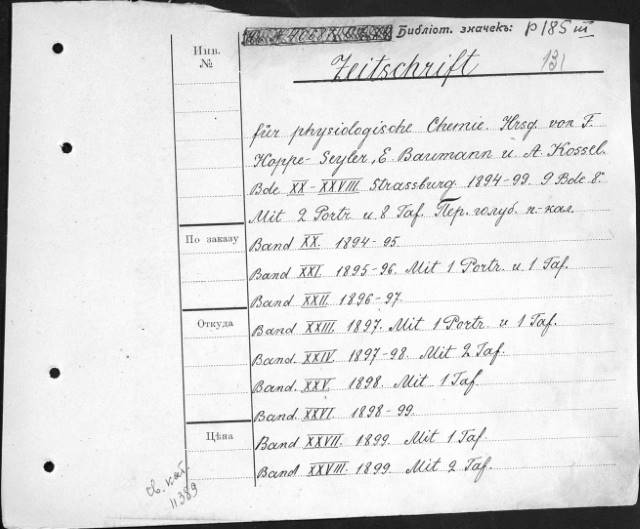 Библіот. значекъ: P 185 III
Инв. №
Zeitschrift
131
für physiologische Chemie. Hrsg. von F.
Hoppe-Seyler, E. Baumann u. A. Kossel.
Bde XX-XXVIII. Strassburg. 1894-99. 9 Bde. 8°.
Mit 2 Portr. u. 8 Taf. Пер. голуб. п-кал.
По заказу
Band XX. 1894-95.
Band XXI. 1895-96. Mit 1 Portr. u. 1 Taf.
Band XXII. 1896-97.
Откуда
Band XXIII. 1897. Mit 1 Portr. u 1 Taf.
Band. XXIV. 1897-98. Mit 2 Taf.
Band. XXV. 1898. Mit 1 Taf.
Band. XXVI. 1898-99.
Цѣна
Band XXVII. 1899. Mit 1 Taf.
Band XXVIII. 1899. Mit 2 Taf.
св. кат
11389